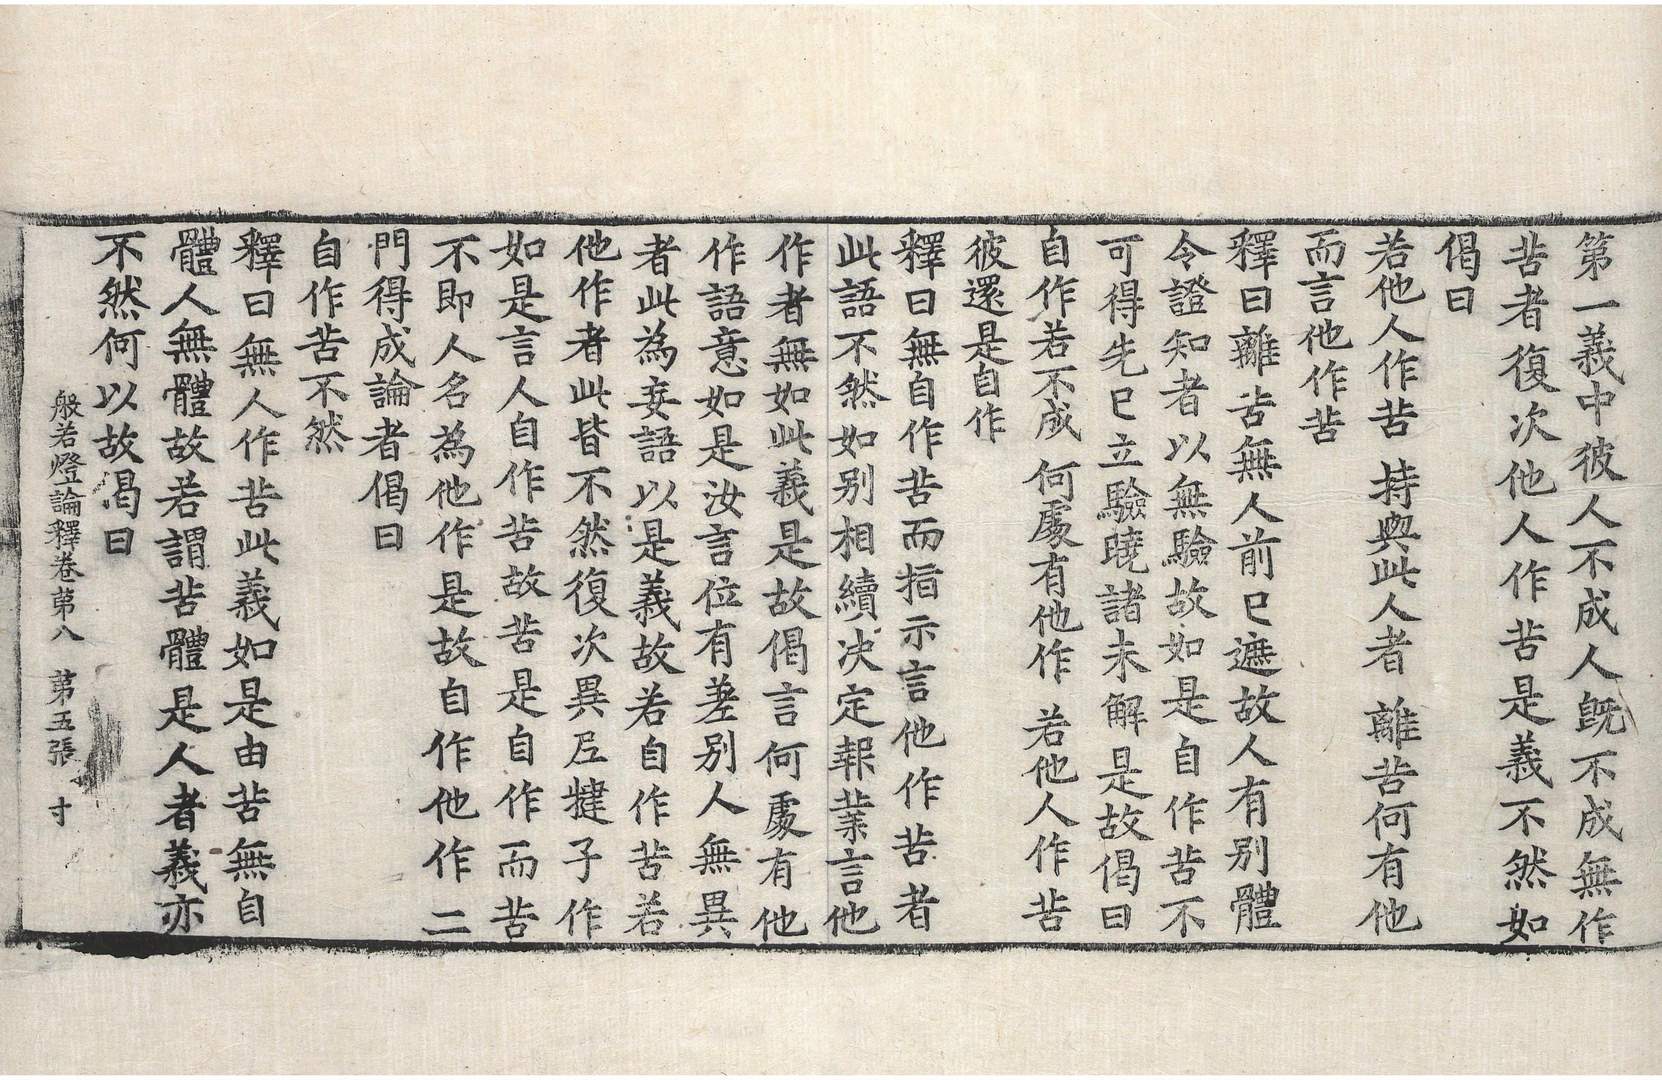 第一義中彼人不成人既不成無作
苦者復次他人作苦是義不然如
偈曰
若他人作苦 持與此人者 離苦何有他
而言他作苦
釋曰離苦無人前已遮故人有別體
令證知者以無驗故如是自作苦不
可得先已立驗曉諸未解是故偈曰
自作若不成 何處有他作 若他人作苦
彼還是自作
釋曰無自作苦而指示言他作苦者
此語不然如別相續决定報業言他
作者無如此義是故偈言何處有他
作語意如是汝言位有差別人無異
者此為妄語以是義故若自作苦若
他作者此皆不然復次異尼揵子作
如是言人自作苦故苦是自作而苦
不即人名為他作是故自作他作二
門得成論者偈曰
自作苦不然
釋曰無人作苦此義如是由苦無自
體人無體故若謂苦體是人者義亦
不然何以故偈曰
般若燈論釋卷第八 第五張 寸